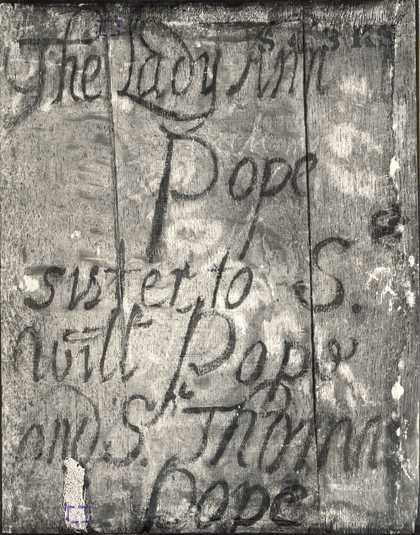 The Lady Ann
Pope
sister to S.
will Pope
and S. Thomas
Pope